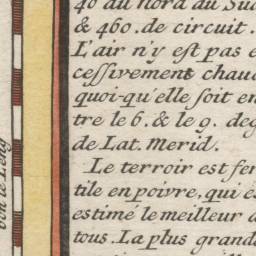 40 du nord au Sud
& 460. de circuit.
L'air n'y est pas e
cessivement chaud
quoi-qu'elle soit en
tre le 6. & le 9. deg
de Lat. Merid.
Le terroir est fer
tile en poivre, qui es
estimé le meilleur d
tous. La plus grand
von 16 Leng